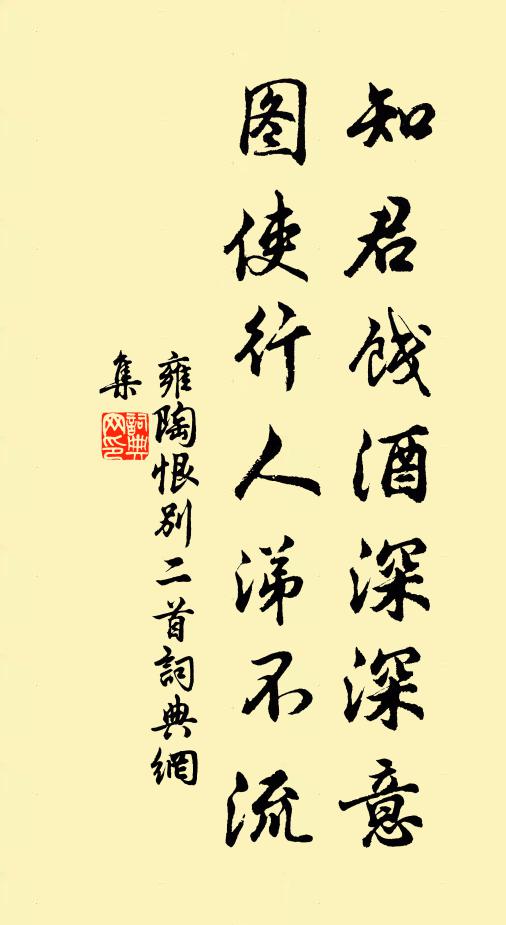 知君饯酒深深意
图使行人涕不流
雍陶恨别二首詞典網
集
詞典
网印